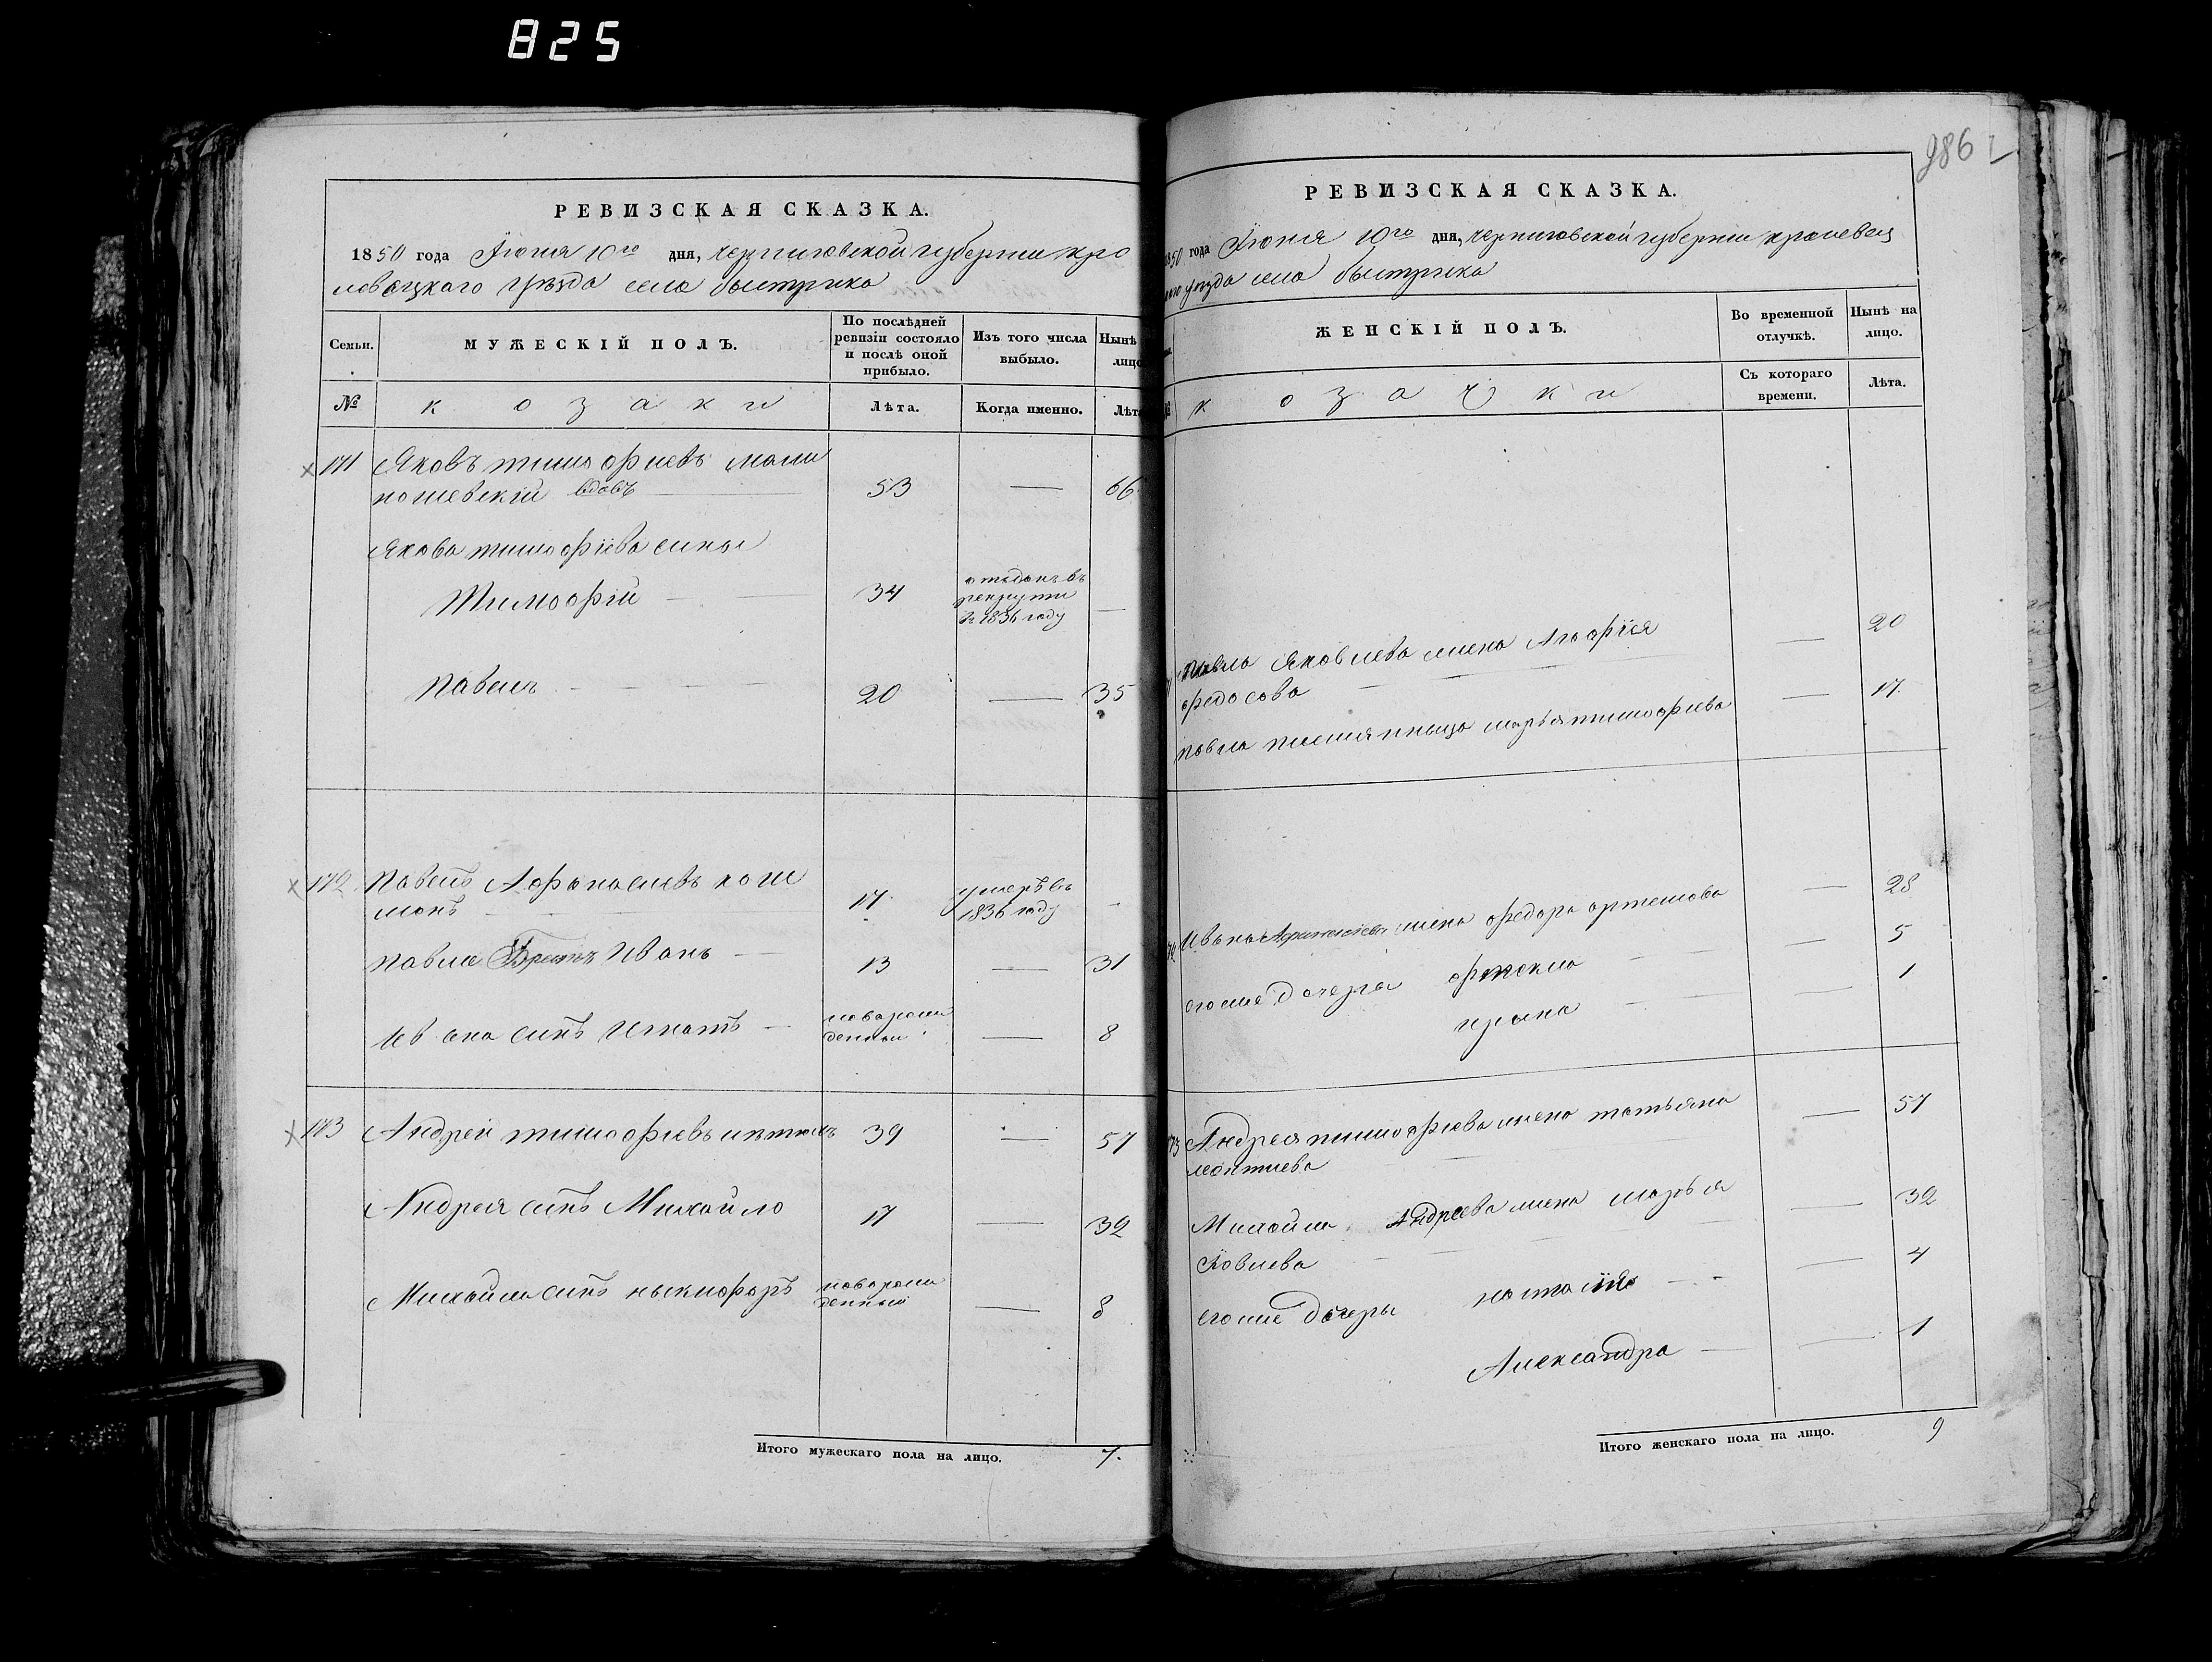 825
РЕВИЗСКАЯ СКАЗКА.
1850 года Июня 10го дня, черниговской губернии кро
левецкаго уѣзда села быстрика
Семьи.
МУЖЕСКІЙ ПОЛЪ.
По послѣдней ревизіи состояло и послѣ оной прибыло.
Изъ того числа выбыло.
Нынѣ лицо
№
козаки
Лѣта.
Когда именно.
Лѣт
171 Яковъ тимофиевъ
вдовъ 53 — 66
Якова тимофіева сины
Тимофій — 34 отданъ въ рекруты в 1836 году —
Павелъ — 20 — 35
172 Павелъ Афонасиевъ
17 умеръ въ 1836 году -
Павла Братъ Иванъ — 13 — 31
Ивана синъ Игнатъ — новорожденный — 8
173 Андрей тимофиевъ 39 — 57
Андрея синъ Михайло 17 — 32
Михайла синъ никифоръ новорожденный — 8
Итого мужескаго пола на лицо. 7.
986
РЕВИЗСКАЯ СКАЗКА.
1850 года Июня 10го дня, черниговской губернии кролевец
уезда села быстрика
ЖЕНСКІЙ ПОЛЪ.
Во временной отлучкѣ.
Нынѣ на лицо.
козачки
Съ котораго времени.
Лѣта.
Павла Яковлева жена Агафія
федосова — 20
павла племянныца марья тимофиева — 17
Ивана Афанасиева жена федора артемова — 28
егоже дочеры 5
ирина — 1
173 Андрея тимофиева жена татьяна
леонтиева — 57
Михайла Андреева жена марья
Яковлева — 32
егоже дочеры наталія — 4
Александра — 1
Итого женскаго пола на лицо. 9